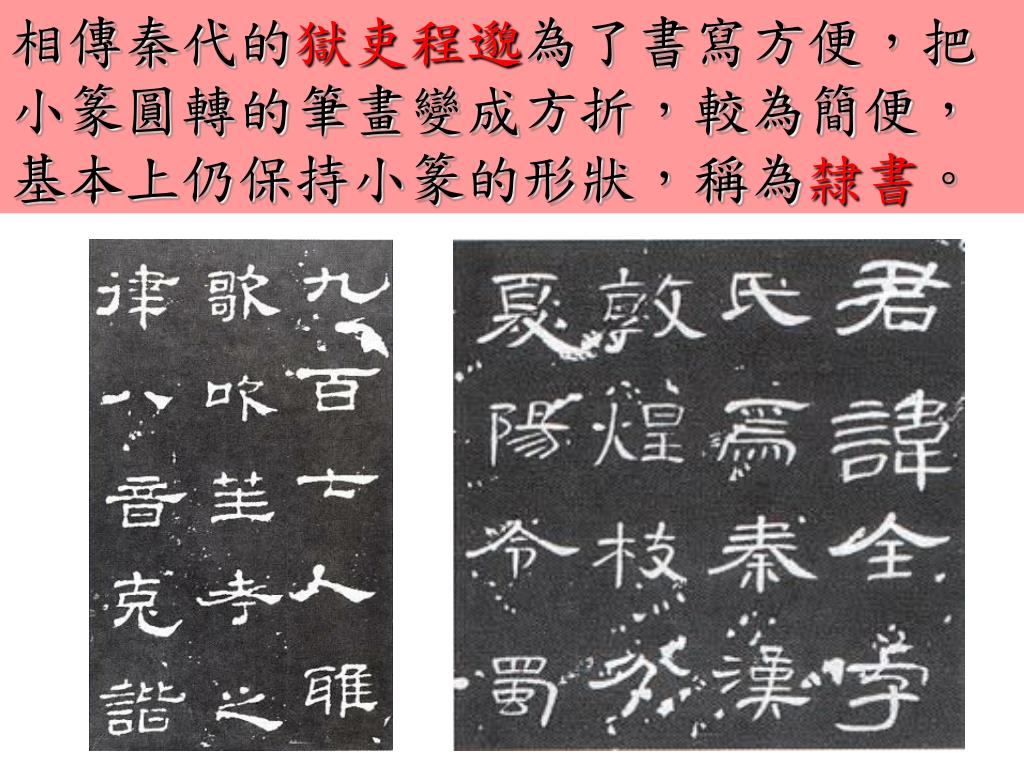 相傳秦代的獄吏程邈為了書寫方便，把
小篆圓轉的筆畫變成方折，較為簡便，
基本上仍保持小篆的形狀，稱為隸書。
九百七人雅
歌吹笙考之
律八音克諧
君諱全字
氏焉秦漢
敦煌枝分
夏陽令蜀